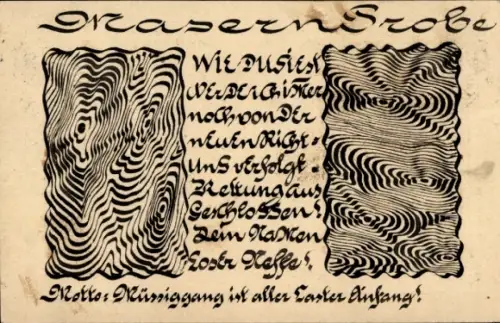 Masern Probe
Wie du siest
werde ich imer
noch von der
neuen Richt=
uns verfolgt.
Rettung aus
geschlossen!
Dein
Neffe!
Motto: Müssiggang ist aller Laster Anfang!